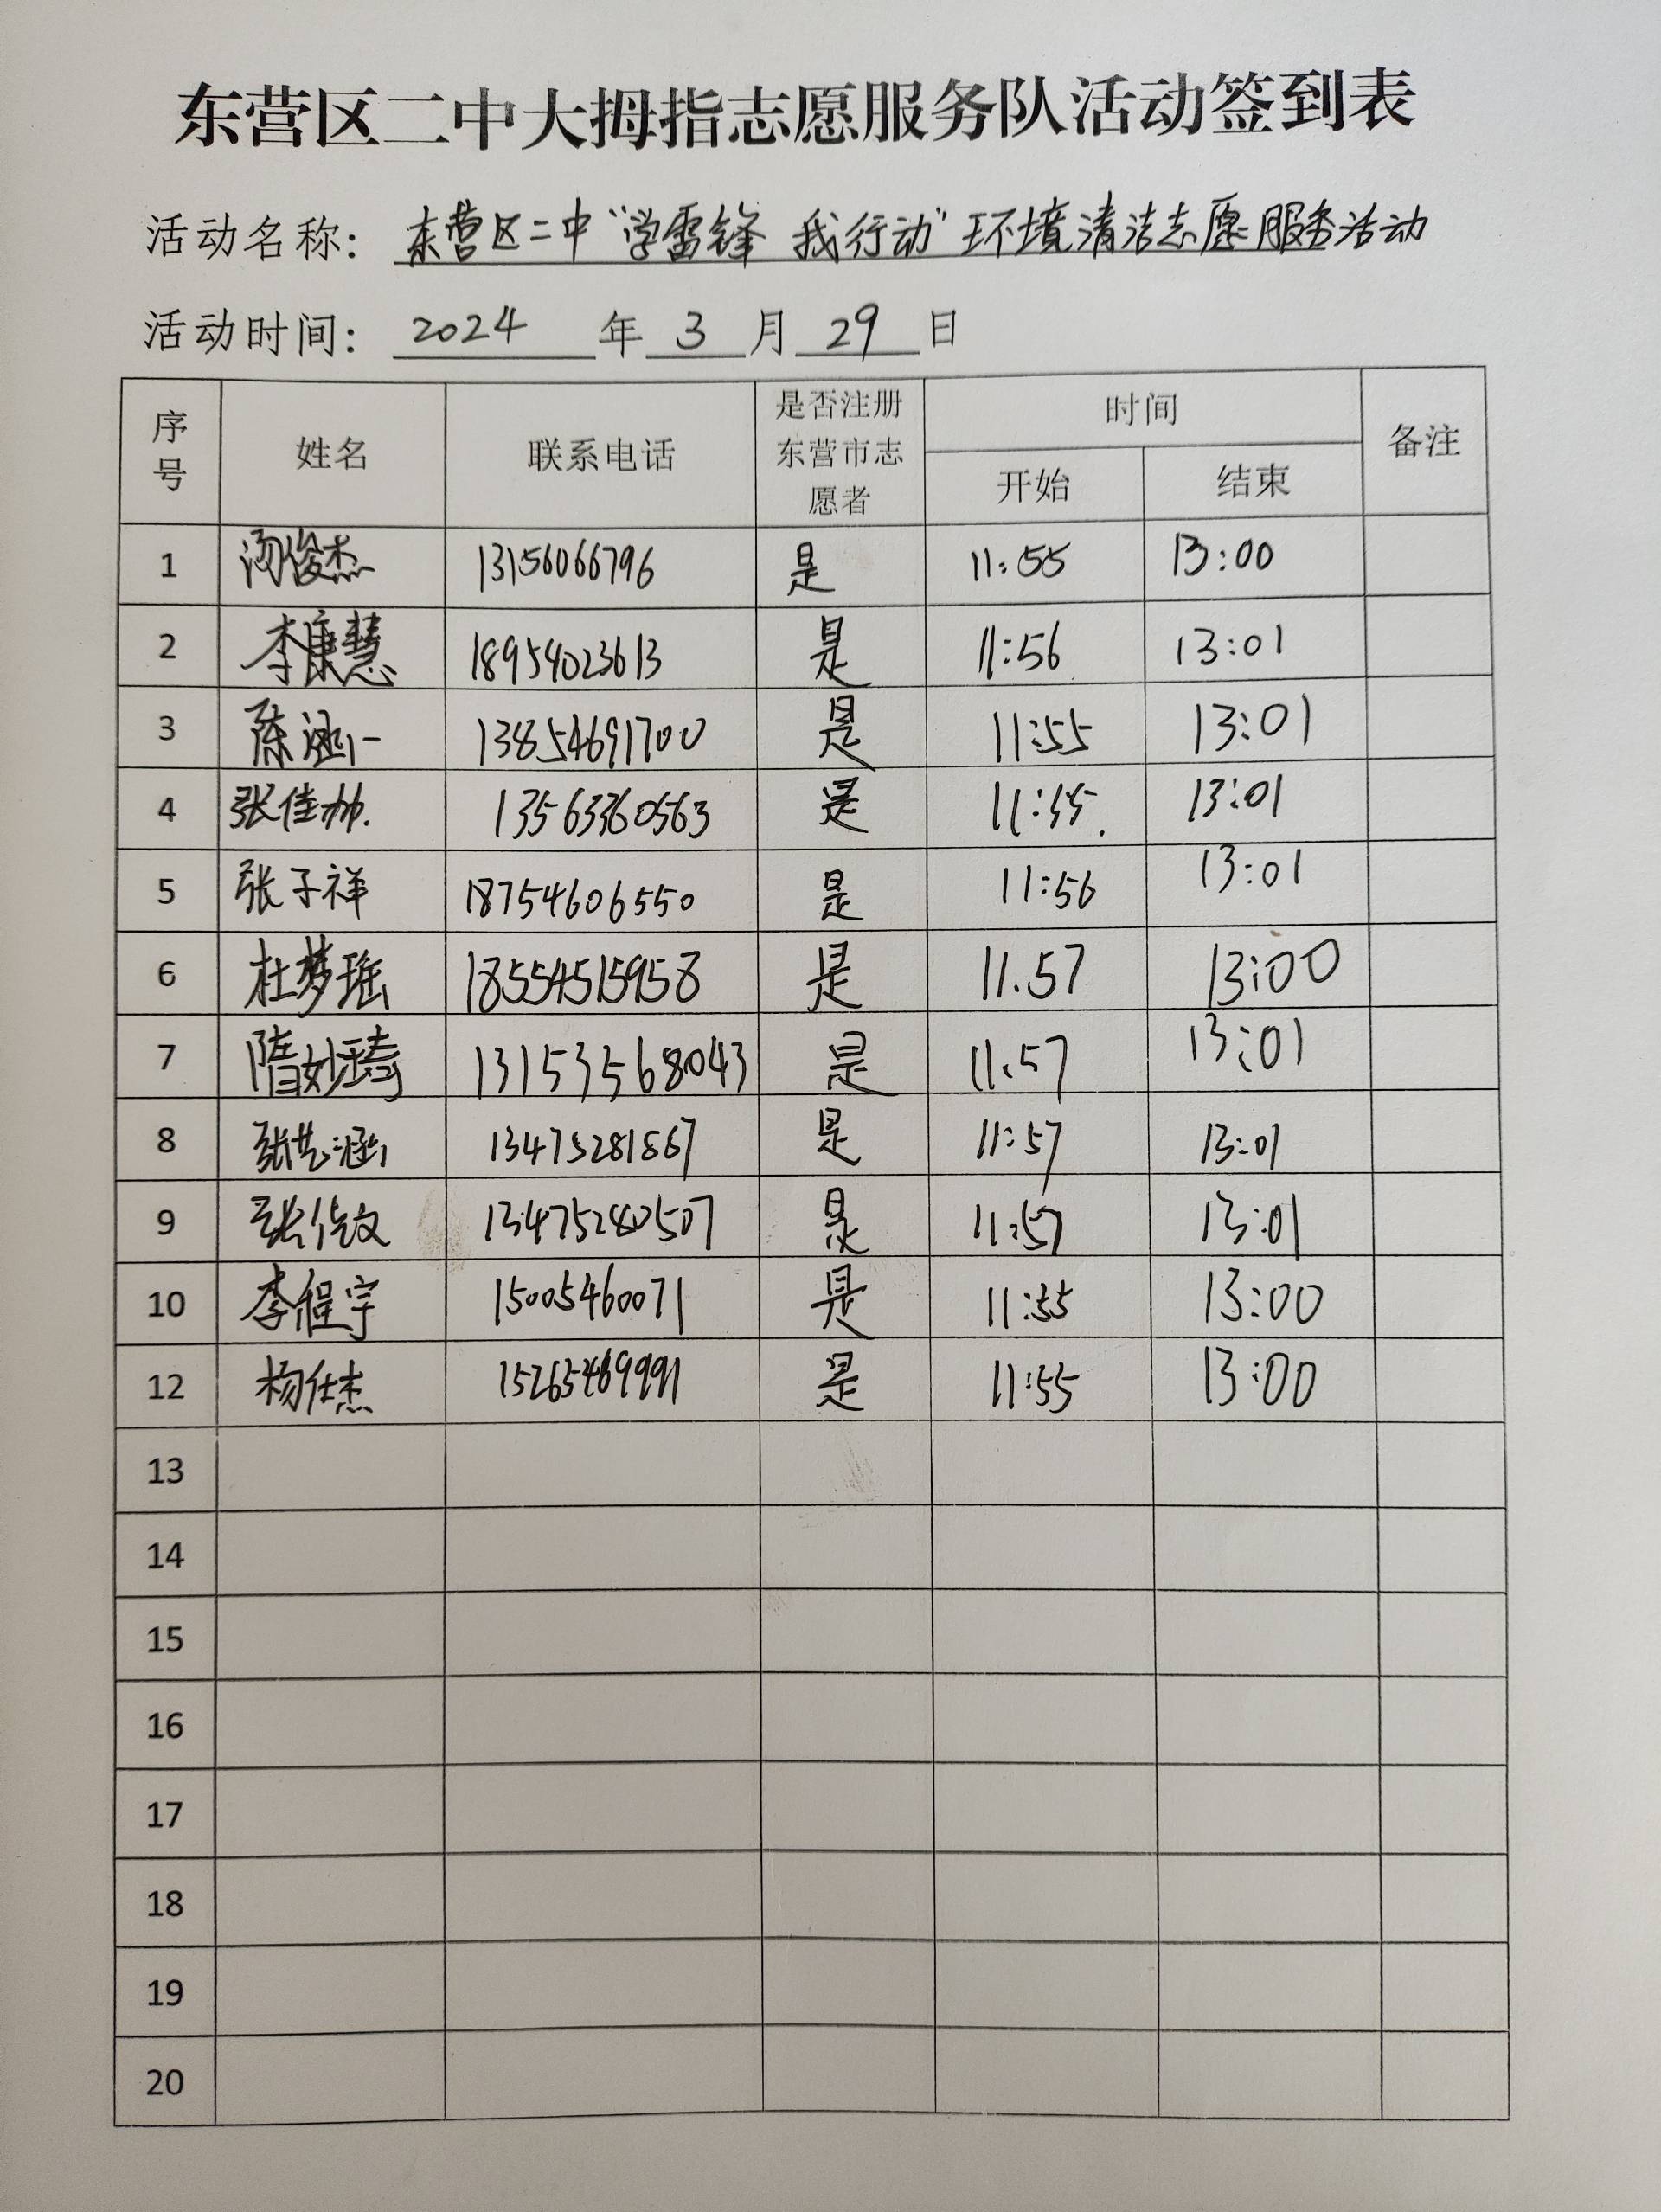 东营区二中大拇指志愿服务队活动签到表
活动名称：东营区二中“学雷锋 我行动”环境清洁志愿服务活动
活动时间：2024年3月29日
序号 姓名 联系电话 是否注册东营市志愿者 时间 备注
开始 结束
1 汤俊杰 13156066796 是 11:55 13:00
2 李康慧 18954023613 是 11:56 13:01
3 陈涵一 13854691700 是 11:55 13:01
4 张佳 13563360563 是 11:55. 13:01
5 张子祥 18754606550 是 11:56 13:01
6 杜梦瑶 18554515958 是 11.57 13:00
7 隋妙琦 13153568043 是 11:57 13:01
8 张艺涵 是 11:57 13:01
9 张 文 13475280507 是 11:57 13:01
10 李程宇 15005460071 是 11:55 13:00
12 杨仕杰 15265469991 是 11:55 13:00
13
14
15
16
17
18
19
20